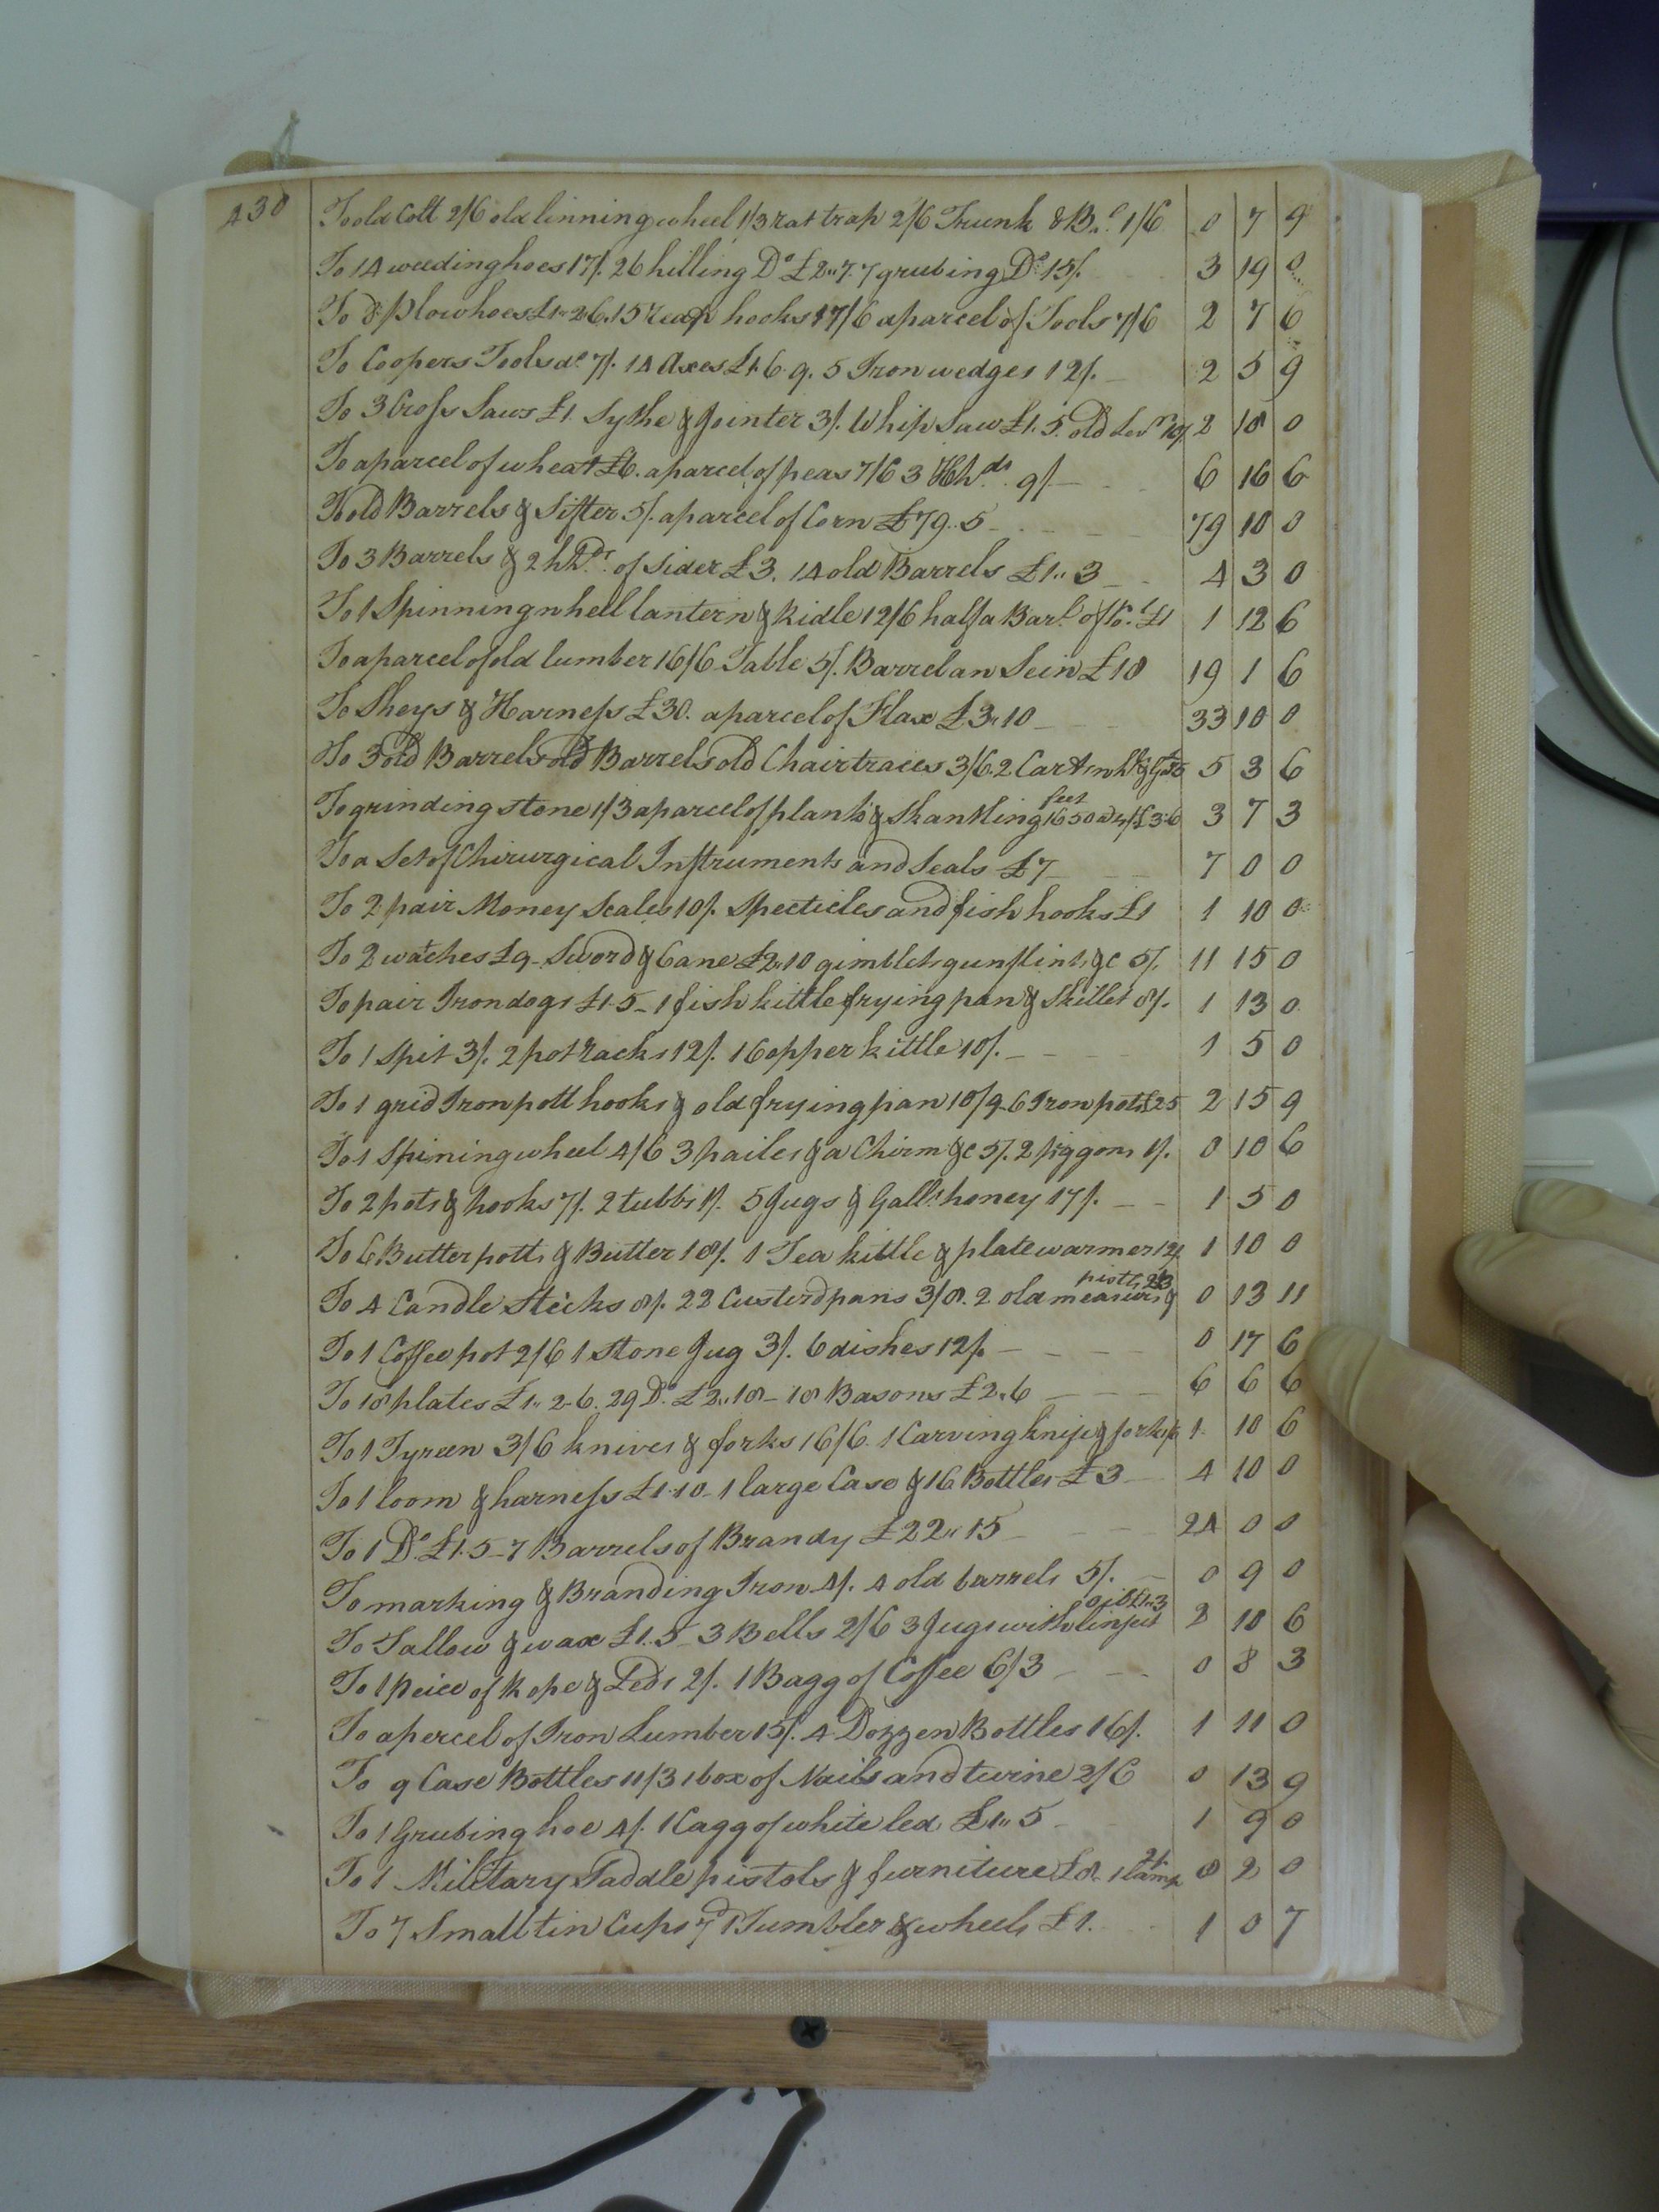 430
To old Colt 2/6 old linning wheel 1/3 rat trap 2/6 Trunk & B 1/6 0 7 9
To 14 weeding hoes 17/. 26 hilling Do £2"7. 7 grubing Do 15/. 3 19 0
To 8 plow hoes £1"2 6. 15 reap hooks 17/6 a parcel of Tools 7/6 2 7 6
To Coopers Tools 7/. 14 Axes £1.6.9. 5 Iron wedges 12/. 2 5 9
To 3 Cross Saws £1. Sythe & Jointer 3/. Whip Saw £1.5. old 10/. 2 18 0
To a parcel of wheat £6. a parcel of peas 7/6 3 Hhds. 9/ 6 16 6
To old Barrels & Sifter 5/. a parcel of Corn £79..5 79 10 0
To 3 Barrels & 2 hhds. of Sider £3. 14 old Barrels £1"3 4 3 0
To 1 Spinning wheel lantern & Kidle 12/6 half a Barl. of £1 1 12 6
To a parcel of old lumber 16/6 Table 5/. Barrel an Sein £18 19 1 6
To Sheys & Harness £30. a parcel of Flax £3"10 33 10 0
To 3 old Barrels old Barrels old Chair traces 3/6. 2 Cart £5 5 3 6
To grinding stone 1/3 a parcel of plank & Skantling 1650 feet @ 4/ £3"6 3 7 3
To a Set of Chirurgical Instruments and Seals £7 7 0 0
To 2 pair Money Scales 10/. Specticles and fish hooks £1 1 10 0
To 2 watches £9 Sword & Cane £2"10 gimblets gunflints &c 5/. 11 15 0
To pair Iron dogs £1.5 1 fish kittle frying pan & Skillet 8/. 1 13 0
To 1 Spit 3/. 2 pot racks 12/. 1 Copper kittle 10/. 1 5 0
To 1 grid Iron pott hooks & old frying pan 10/9 6 Iron pots £2 5 2 15 9
To 1 Spining wheel 4/6 3 pailes & a Chirm &c 5/. 2 piggons 1/. 0 10 6
To 2 pots & hooks 7/. 2 tubbs 1/. 5 Jugs & Galls. honey 17/. 1 5 0
To 6 Butter potts & Butter 18/. 1 Tea kittle & plate warmer 12/. 1 10 0
To 4 Candle Sticks 8/. 22 Custerd pans 3/8. 2 old measures & 2/3 0 13 11
To 1 Coffee pot 2/6 1 Stone Jug 3/. 6 dishes 12/. 0 17 6
To 18 plates £1"2-6. 29 Do. £2"18 - 18 Basons £2"6 6 6 6
To 1 Tyreen 3/6 knives & forks 16/6. 1 Carving knife & fork 1 10 6
To 1 loom & harness £1.10 1 large Case & 16 Bottles £3 4 10 0
To 1 Do. £1.5 - 7 Barrels of Brandy £22"15 24 0 0
To marking & Branding Iron 4/. 4 old barrels 5/. 0 9 0
To Tallow & wax £1.5 3 Bells 2/6 3 Jugs with linseed oil £1"3 2 10 6
To 1 peice of Rope & Leds 2/. 1 Bagg of Coffee 6/3 0 8 3
To a percel of Iron Lumber 15/. 4 Dozzen Bottles 16/. 1 11 0
To 9 Case Bottles 11/3 1 box of Nails and twine 2/6 0 13 9
To 1 Grubing hoe 4/. 1 Cagg of white led £1"5 1 9 0
To 1 Military Saddle pistols & furniture £8. 1 lamp 2/. 8 2 0
To 7 Small tin Cups 7d 1 Tumbler & wheels £1. 1 0 7